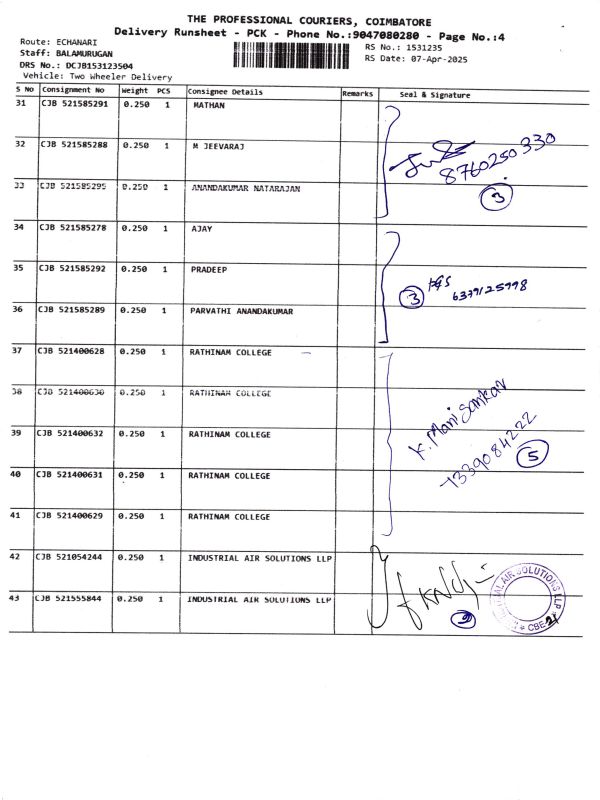 THE PROFESSIONAL COURIERS, COIMBATORE
Delivery Runsheet - PCK - Phone No.:9047080280 - Page No.:4
Route: ECHANARI
RS No.: 1531235
Staff: BALAMURUGAN
RS Date: 07-Apr-2025
DRS No.: DCJB153123504
Vehicle: Two Wheeler Delivery
S No Consignment No Weight PCS Consignee Details Remarks Seal & Signature
31 CJB 521585291 0.250 1 MATHAN
32 CJB 521585288 0.250 1 M JEEVARAJ
8760250330
33 CJB 521585295 0.250 1 ANANDAKUMAR NATARAJAN
3
34 CJB 521585278 0.250 1 AJAY
35 CJB 521585292 0.250 1 PRADEEP
3 6379125998
36 CJB 521585289 0.250 1 PARVATHI ANANDAKUMAR
37 CJB 521400628 0.250 1 RATHINAM COLLEGE
38 CJB 521400630 0.250 1 RATHINAM COLLEGE
K. Mani Sankar
39 CJB 521400632 0.250 1 RATHINAM COLLEGE
7339084222
5
40 CJB 521400631 0.250 1 RATHINAM COLLEGE
41 CJB 521400629 0.250 1 RATHINAM COLLEGE
42 CJB 521054244 0.250 1 INDUSTRIAL AIR SOLUTIONS LLP
43 CJB 521555844 0.250 1 INDUSTRIAL AIR SOLUTIONS LLP
AIR SOLUTIONS LLP * CBE-21 *